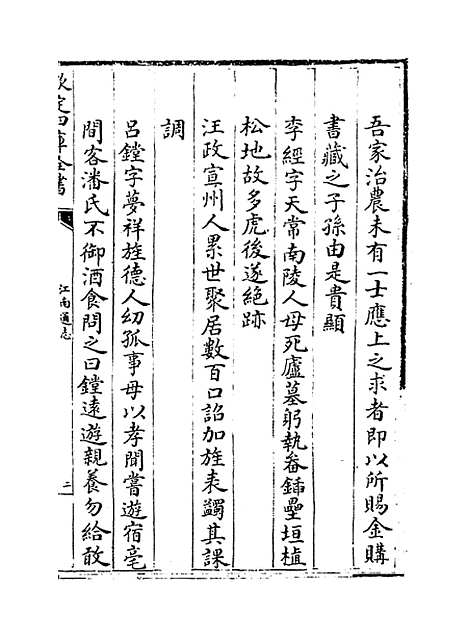 吾家治農未有一士應上之求者即以所賜金購
書藏之子孫由是貴顯
李經字天常南陵人母死廬墓躬執畚鍤壘垣植
松地故多虎後遂絶跡
汪政寘州人累世聚居數百口詔加旌表蠲其課
調
呂鏜字夢祥旌德人幼孤事母以孝聞嘗遊宿亳
間客潘氏不御酒食問之曰鏜遠遊親養勿給敢
欽定四庫全書
江南通志
二